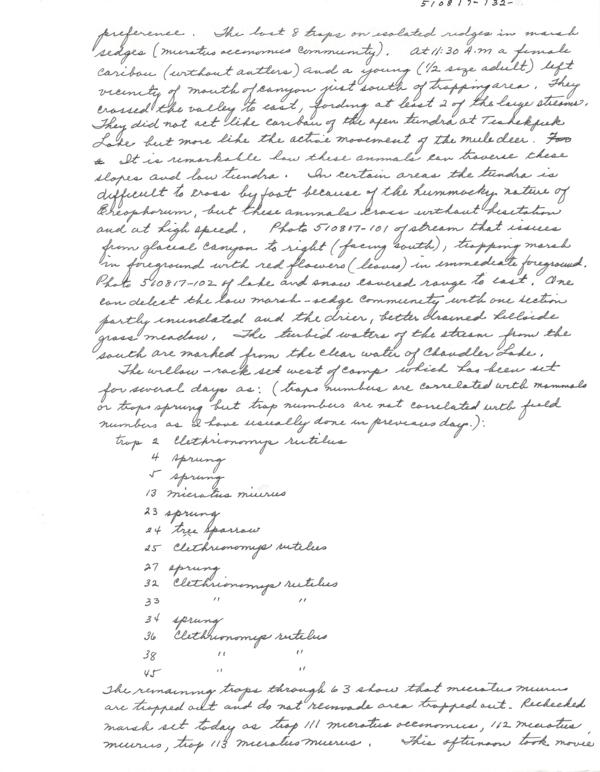 510817-132-
preference. The last 8 traps on isolated ridges in marsh
sedges (microtus oeconomus community). At 11:30 A.M a female
caribou (without antlers) and a young (1/2 size adult) left
vicinity of mouth of canyon just south of trapping area. They
crossed the valley to east, fording at least 2 of the large streams.
They did not act like caribou of the open tundra at Teshekpuk
Lake but more like the active movement of the mule deer.
It is remarkable how these animals can traverse these
slopes and low tundra. In certain areas the tundra is
difficult to cross by foot because of the hummocky nature of
Eriophorum, but these animals cross without hesitation
and at high speed. Photo 510817-101 of stream that issues
from glacial canyon to right (facing south), trapping marsh
in foreground with red flowers (leaves) in immediate foreground.
Photo 510817-102 of lake and snow covered range to east. One
can detect the low marsh-sedge community with one section
partly inundated and the drier, better drained hillside
grass meadow. The turbid waters of the stream from the
south are marked from the clear water of Chandler Lake.
The willow-rock set west of camp which has been set
for several days as: (traps numbers are correlated with mammals
or traps sprung but trap numbers are not correlated with field
numbers as I have usually done in previous day.):
trap 2 Clethrionomys rutilus
4 sprung
5 sprung
13 microtus miurus
23 sprung
24 tree sparrow
25 Clethrionomys rutilus
27 sprung
32 Clethrionomys rutilus
33 " "
34 sprung
36 Clethrionomys rutilus
38 " "
45 " "
The remaining traps through 63 show that microtus miurus
are trapped out and do not reinvade area trapped out. Rechecked
marsh set today as trap 111 microtus oeconomus, 112 microtus
miurus, trap 113 microtus miurus. This afternoon took movie